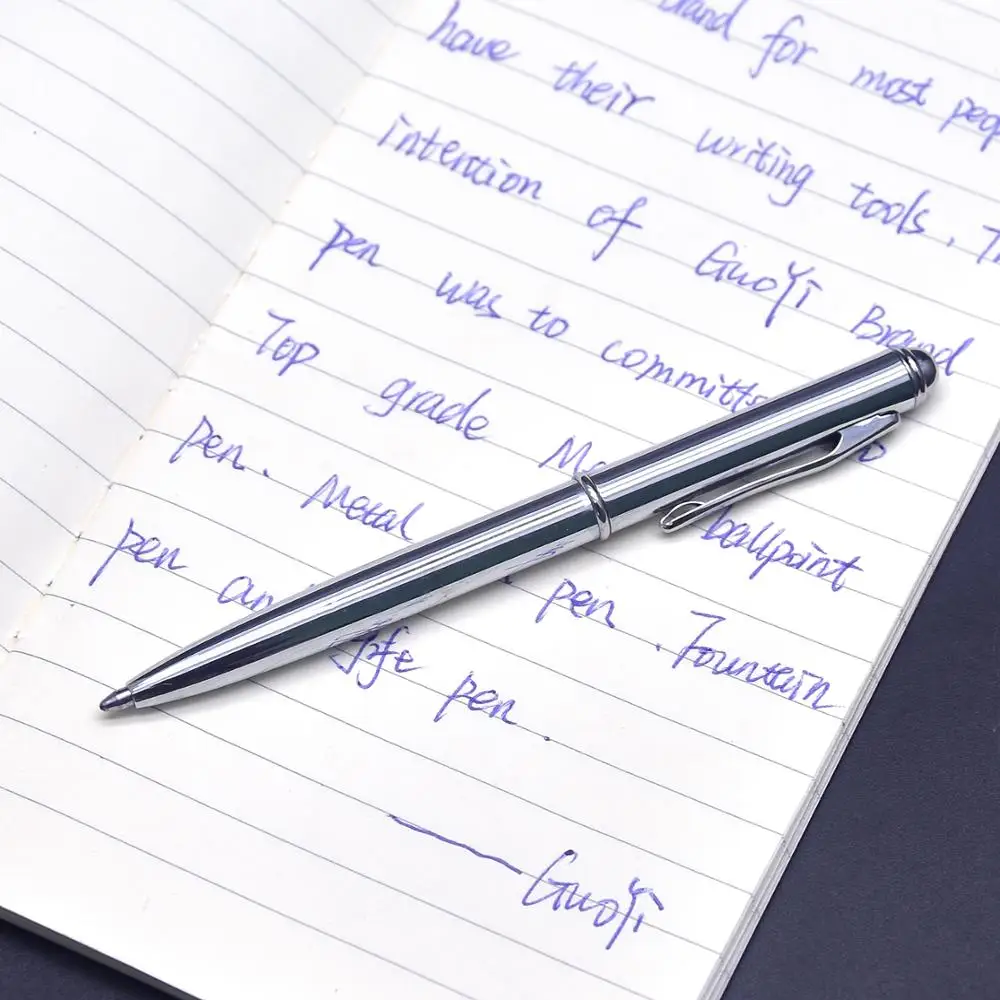 for most
have their writing tools.
intention of GuoYi Brand
pen was to
Top grade
pen. Metal ballpoint
pen pen. Fountain
pen.
—GuoYi